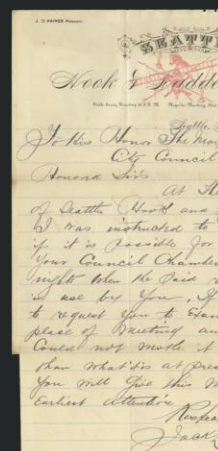 J. G. HAINES
SEATTL
Hook & Ladde
Seattle
To His Honor The May
City Council
Honored Sirs
At Th
of Seattle Hook and
I was instructed to
if it is Possible for
Your Council Chamber
nights when the Said
in use by You, If
to request You to Exam
place of Meeting and
Could not movele it
than what is at prese
You will Give this M
Earliest attention
Respec
Jack